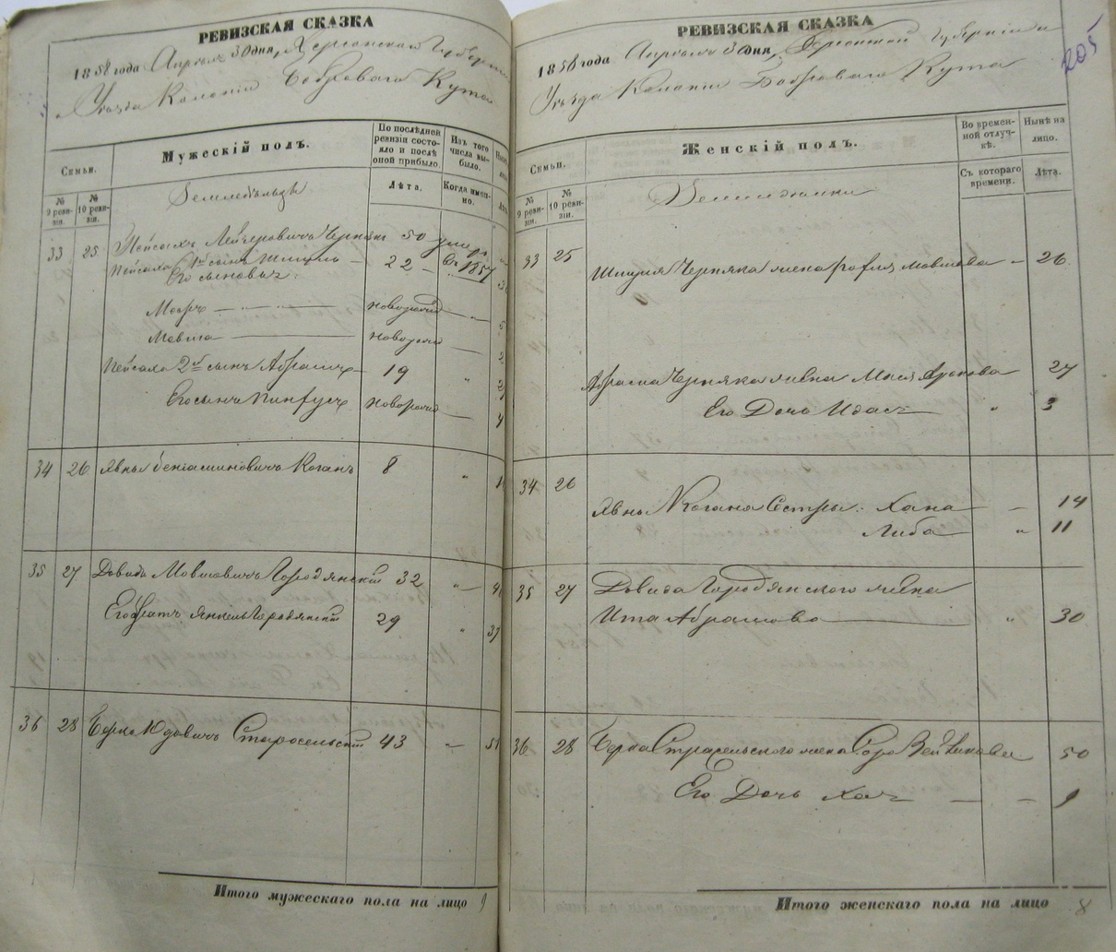 РЕВИЗСКАЯ СКАЗКА
1858 года Апреля 30 дня, Херсонской Губернии
Уезда Колонии Боброваго Кута
Семьи.
Мужескій полъ.
По последней ревизіи состояло и послѣ оной прибыло.
Изъ того числа выбыло.
№ 9 ревизіи.
№ 10 ревизіи.
Земледельцы
Лѣта.
Когда именно.
33 25 Пейсахъ Лейзеровичъ Чернякъ 50 умер. въ 1857
Пейсаха 1й сынъ Шмуль 22
Его сыновья:
Мееръ новорожд
Мовша новорожд
Пейсаха 2й сынъ Абрамъ 19
Его сынъ Пинхусъ новорожд
34 26 Явны Беніаминовичъ Коганъ 8
35 27 Довидъ Мовшовичъ Городянскій 32
Его братъ Янкель Городянскій 29
36 28 Берко Юдовичъ Старосельскій 43
Итого мужескаго пола на лицо 9
РЕВИЗСКАЯ СКАЗКА
205
1858 года Апреля 30 дня, Херсонской Губерніи
Уезда Колоніи Боброваго Кута
Семьи.
Женскій полъ.
Во временной отлучкѣ.
Нынѣ на лицо.
№ 9 ревизіи.
№ 10 ревизіи.
Съ котораго времени.
Лѣта.
33 25 Шмуля Черняка жена Рохля Мовшова 26
Абрама Черняка жена Аронова 27
Его Дочь 3
34 26
Явны Когана Сестры: Хана 14
Либа 11
35 27 Довида Городянского жена
Ита Абрамова 30
36 28 Берка Старосельского жена Сора 50
Его Дочь Хая 9
Итого женскаго пола на лицо 8